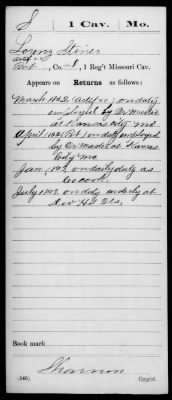 S 1 Cav. Mo.
Lorenz Steiner
Co. I, 1 Reg't Missouri Cav.
Appears on
Returns as follows:
March 1862 (Artif'r) on duty
employed by Dr
at Kansas City Mo
April 1862 (Pvt) on duty employed
by Dr at Kansas
City Mo.
Jan, 1863, on daily duty as
Co. cook.
July 1863 on duty orderly at
Hd Qrs,
Book mark
Shannon
(546) Copyist.